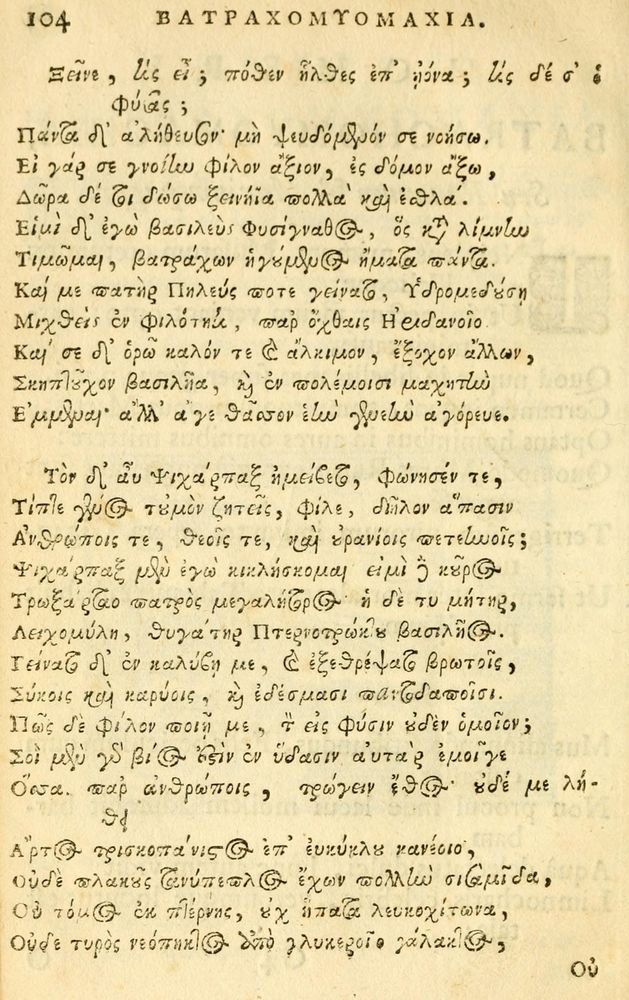 104 ΒΑΤΡΑΧΟΜΥΟΜΑΧΙΑ.
Ξεῖνε, τίς εἶ; πόθεν ἦλθες ἐπ' ἠϊόνα; τίς δέ σ' ὁ
φύσας;
Πάντα δ' ἀλήθευσον· μὴ ψευδόμενόν σε νοήσω.
Εἰ γάρ σε γνοίην φίλον ἄξιον, ἐς δόμον ἄξω,
Δῶρα δέ τοι δώσω ξεινήϊα πολλὰ καὶ ἐσθλά.
Εἰμὶ δ' ἐγὼ βασιλεὺς Φυσίγναθος, ὃς κατὰ λίμνην
Τιμῶμαι, βατράχων ἡγούμενος ἤματα πάντα.
Καί με πατὴρ Πηλεύς ποτε γείνατο, Ὑδρομεδούσῃ
Μιχθεὶς ἐν φιλότητι, παρ' ὄχθαις Ἠριδανοῖο
Καί σε δ' ὁρῶ καλόν τε καὶ ἄλκιμον, ἔξοχον ἄλλων,
Σκηπτοῦχον βασιλῆα, καὶ ἐν πολέμοισι μαχητὴν
Ἔμμεναι· ἀλλ' ἄγε θᾶσσον ἑὴν γενεὴν ἀγόρευε.
Τὸν δ' αὖ Ψιχάρπαξ ἠμείβετο, φώνησέν τε,
Τίπτε γένος τοὐμὸν ζητεῖς, φίλε, δῆλον ἅπασιν
Ἀνθρώποις τε, θεοῖς τε, καὶ οὐρανίοις πετεηνοῖς;
Ψιχάρπαξ μὲν ἐγὼ κικλήσκομαι εἰμὶ δὲ κοῦρος
Τρωξάρταο πατρὸς μεγαλήτορος ἡ δέ τυ μήτηρ,
Λειχομύλη, θυγάτηρ Πτερνοτρώκτου βασιλῆος.
Γείνατο δ' ἐν καλύβῃ με, καὶ ἐξεθρέψατο βρωτοῖς,
Σύκοις καὶ καρύοις, καὶ ἐδέσμασι παντοδαποῖσι.
Πῶς δὲ φίλον ποιῇ με, τὸν εἰς φύσιν οὐδὲν ὁμοῖον;
Σοὶ μὲν γὰρ βίος ἐστὶν ἐν ὕδασιν αὐτὰρ ἐμοίγε
Ὅσσα παρ' ἀνθρώποις, τρώγειν ἔθος· οὐδέ με λή-
θει
Ἄρτος τρισκοπάνιστος ἐπ' εὐκύκλου κανέοιο,
Οὐδὲ πλακοῦς τανύπεπλος ἔχων πολλὴν σισαμῖδα,
Οὐ τόμος ἐκ πτέρνης, οὐχ ἥπατα λευκοχίτωνα,
Οὐδὲ τυρὸς νεόπηκτος ἀπὸ γλυκεροῖο γάλακτος,
Οὐ